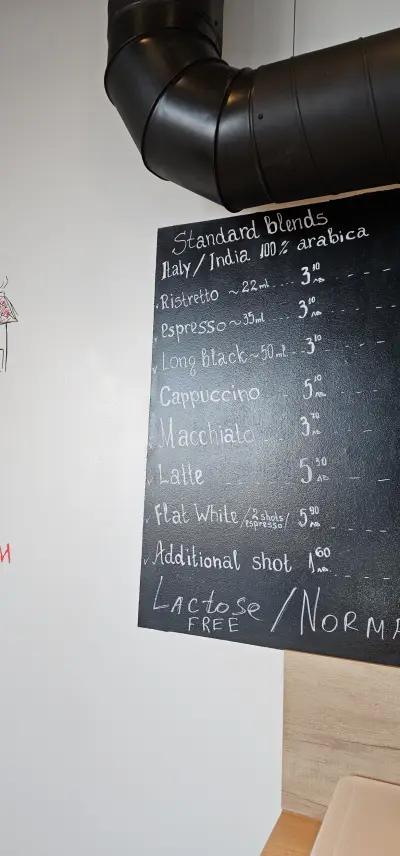 Standard blends
Italy/India 100% arabica
Ristretto ~22ml 3.10 лв
espresso ~35ml 3.10 лв
Long black ~50ml 3.10
Cappuccino 5.10 лв
Macchiato 3.70 лв
Latte 5.50 лв
Flat White /2 shots espresso/ 5.90 лв
Additional shot 1.60 лв
Lactose / Norma
FREE